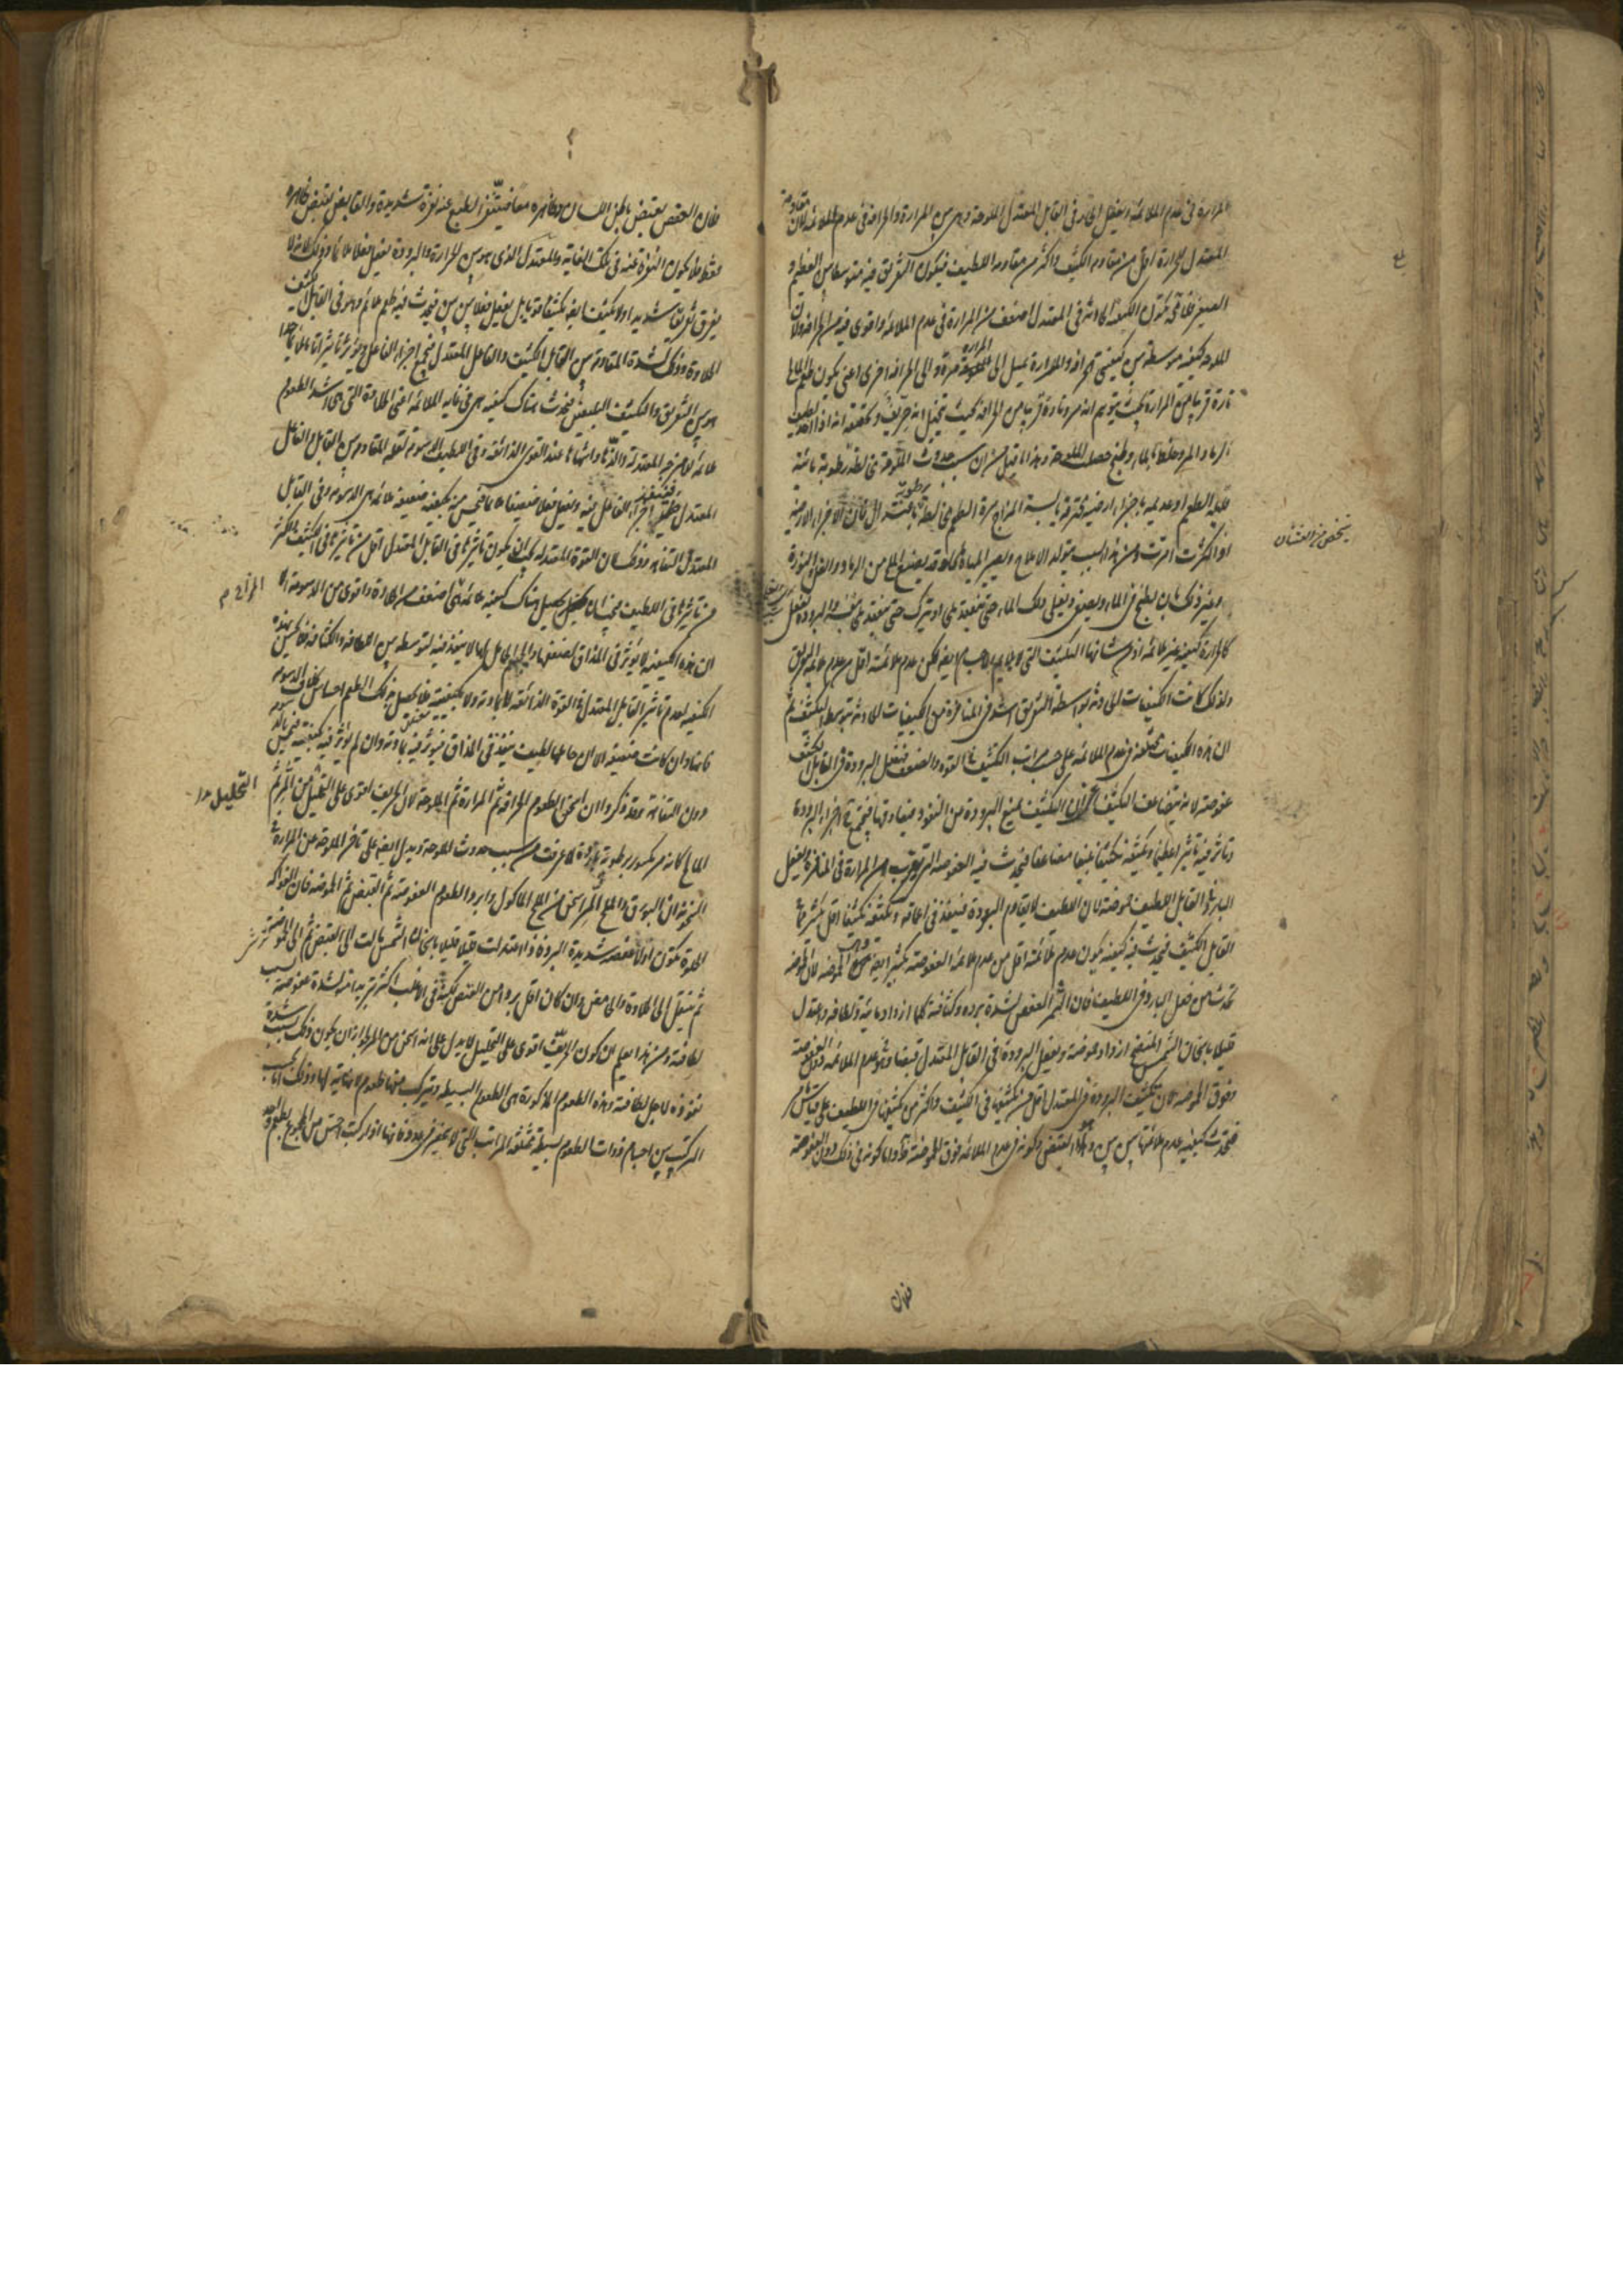 المرارة في عدم الملائمة ويفعل الحار في القابل المعتدل الملوحة وهي بين المرارة والحرافة في عدم الملائمة لان مقاومة
المعتدل للحرارة اقل من مقاومة الكثيف واكثر من مقاومة اللطيف فيكون التفريق فيه متوسطا بين العظيم و
الصغير الكيفية الحادثة في المعتدل اضعف من المرارة في عدم الملائمة واقوى فيه من الحرافة ولان
الملوحة كيفية متوسطة بين كيفيتي الحرافة والمرارة يميل الى المرارة مرة والى الحرافة اخرى اعني يكون طعم المالح
تارة قريبا من المرارة بحيث يتوهم انه مر وتارة قريبا من الحرافة بحيث يتخيل انه حريف وتحققه انه اذا اخذ لطيف
الرماد المر وخلط بالماء وطبخ حصلت الملوحة وهذا ما قيل من ان سبب حدوث الملوحة مخالطة رطوبة مائية
قليلة الطعم او عديمه باجزاء ارضية محترقة يابسة المزاج مرة الطعم مخالطة باعتدال فان الاجزاء الارضية
اذا كثرت امرت ومن هذا السبب يتولد الاملاح ويصير المياه مالحة وقد يصنع الملح من الرماد والقلي والنورة
وغير ذلك بان يطبخ في الماء ويصفى ويغلى ذلك الماء حتى ينعقد ملحا او يترك حتى ينعقد بنفسه والبرودة تفعل
كالحرارة كيفية غير ملائمة اذ من شانها التكثيف الذي لا يلائم الاجسام ايضا لكن عدم ملائمته اقل من عدم ملائمة التفريق
ولذلك كانت الكيفيات الحادثة بواسطة التفريق اشد في المنافرة من الكيفيات الحادثة بتوسط التكثيف ثم
ان هذه الكيفيات مختلفة في عدم الملائمة على حسب مراتب التكثيف في القوة والضعف فتفعل البرودة في القابل الكثيف
عفوصة لانه يتضاعف التكثيف لان الكثيف يمنع البرودة من النفوذ ويقاومها فيجتمع اجزاء البرودة
وتاثر فيه تاثيرا عظيما وتكثفه تكثيفا بليغا مضاعفا فيحدث فيه العفوصة التي تقرب من المرارة في المنافرة ويفعل
البارد في القابل اللطيف حموضة لان اللطيف لا يقاوم البرودة فينفذ في اعماقه ويكثفه تكثيفا اقل من كثيف
القابل الكثيف فيحدث فيه كيفية يكون عدم ملائمته اقل من عدم ملائمة العفوصة بكثير الحموضة لان الحموضة
تحدث من فعل البارد في اللطيف فان الثمر العفص لشدة برده وكثافته كلما ازداد مائية ولطافة واعتدل
قليلا باسخان الشمس المنضج ازداد حموضة ويفعل البرودة في القابل المعتدل قبضا وهو في عدم الملائمة دون العفوصة
وفوق الحموضة لان تكثيف البرودة في المعتدل اقل من تكثيفها في الكثيف واكثر من تكثيفها في اللطيف على قياس ما مر
فيحدث كيفية عدم ملائمتها بين بين وهو القبض وكونه في عدم الملائمة فوق الحموضة ظ واما كونه في ذلك دون العفوصة
فلان
فلان العفص يقبض باطن اللسان وظاهره معا فيتنفر الطبع عنه نفرة شديدة والقابض يقبض ظاهره
فقط فلا يكون النفرة عنه في تلك الغاية والمعتدل الذي هو بين الحرارة والبرودة يفعل فعلا ملائما وذلك لانه لا
يفرق تفريقا شديدا ولا تكثيفا ايضا تكثيفا قويا بل يفعل فعلا بين بين فيحدث فيه طعم ملائم وهو في القابل الكثيف
الحلاوة وذلك لشدة المقاومة بين القابل الكثيف والفاعل المعتدل فيجتمع اجزاء الفاعل ويؤثر تاثيرا تاما ملائما جدا
بين التفريق والتكثيف البليغين فيحدث هناك كيفية هي في غاية الملائمة اعني الحلاوة التي هي اشد الطعوم
ملائمة للامزجة المعتدلة والذها واشهاها عند القوى الذائقة وفي اللطيف الدسومة لقلة المقاومة بين القابل والفاعل
المعتدل فينتشر اجزاء الفاعل فيه ويفعل فعلا ضعيفا ملائما فيحس منه بكيفية ضعيفة ملائمة هي الدسومة وفي القابل
المعتدل التفاهة وذلك لان القوة المعتدلة يجب ان يكون تاثيرها في القابل المعتدل اقل من تاثيرها في الكثيف واكثر
من تاثيرها في اللطيف فيجب ان يحصل هناك كيفية ملائمة هي اضعف من الحلاوة واقوى من الدسومة الا
ان هذه الكيفية لا يؤثر في المذاق لضعفها والجسم الحامل لها لا ينفذ فيه لتوسطه بين اللطافة والكثافة فلا يحس بهذه
الكيفية لعدم تاثير القابل المعتدل في القوة الذائقة لا بمادته ولا بكيفيته فلا يحصل بذلك الطعم احساس بخلاف الدسومة
فانها وان كانت ضعيفة الا ان حاملها لطيف ينفذ في المذاق فيؤثر فيه بمادته وان لم يؤثر فيه بكيفيته
دون التفاهة وقد ذكروا ان اسخن الطعوم الحرافة ثم المرارة ثم الملوحة لان الحريف اقوى على التحليل من المر ثم
المالح كانه مر مكسور برطوبة باردة لما عرفت من سبب حدوث الملوحة ويدل ايضا على تاخر الملوحة عن المرارة في
السخونة ان البورق والملح المر اسخن من الملح الماكول وابرد الطعوم العفوصة ثم القبض ثم الحموضة فان الفواكه
الحلوة تكون اولا عفصة شديدة البرودة فاذا اعتدلت قليلا قليلا باسخان الشمس مالت الى القبض ثم الى الحموضة
ثم ينتقل الى الحلاوة والحامض وان كان اقل بردا من العفص لكنه في الاغلب اكثر تبريدا منه لشدة غوصه بسبب
لطافته ومن هذا يعلم ان كون الحريف اقوى على التحليل لا يدل على انه اسخن من المر لجواز ان يكون ذلك بسبب شدة
نفوذه لاجل لطافته وهذه الطعوم المذكورة هي الطعوم البسيطة ويتركب منها طعوم لا نهاية لها وذلك اما بحسب
التركيب بين اجسام ذوات الطعوم بسيطة مختلفة المراتب التي لا تنحصر في عدد فانها اذا ركبت احس من المجموع بطعم واحد
التحليل